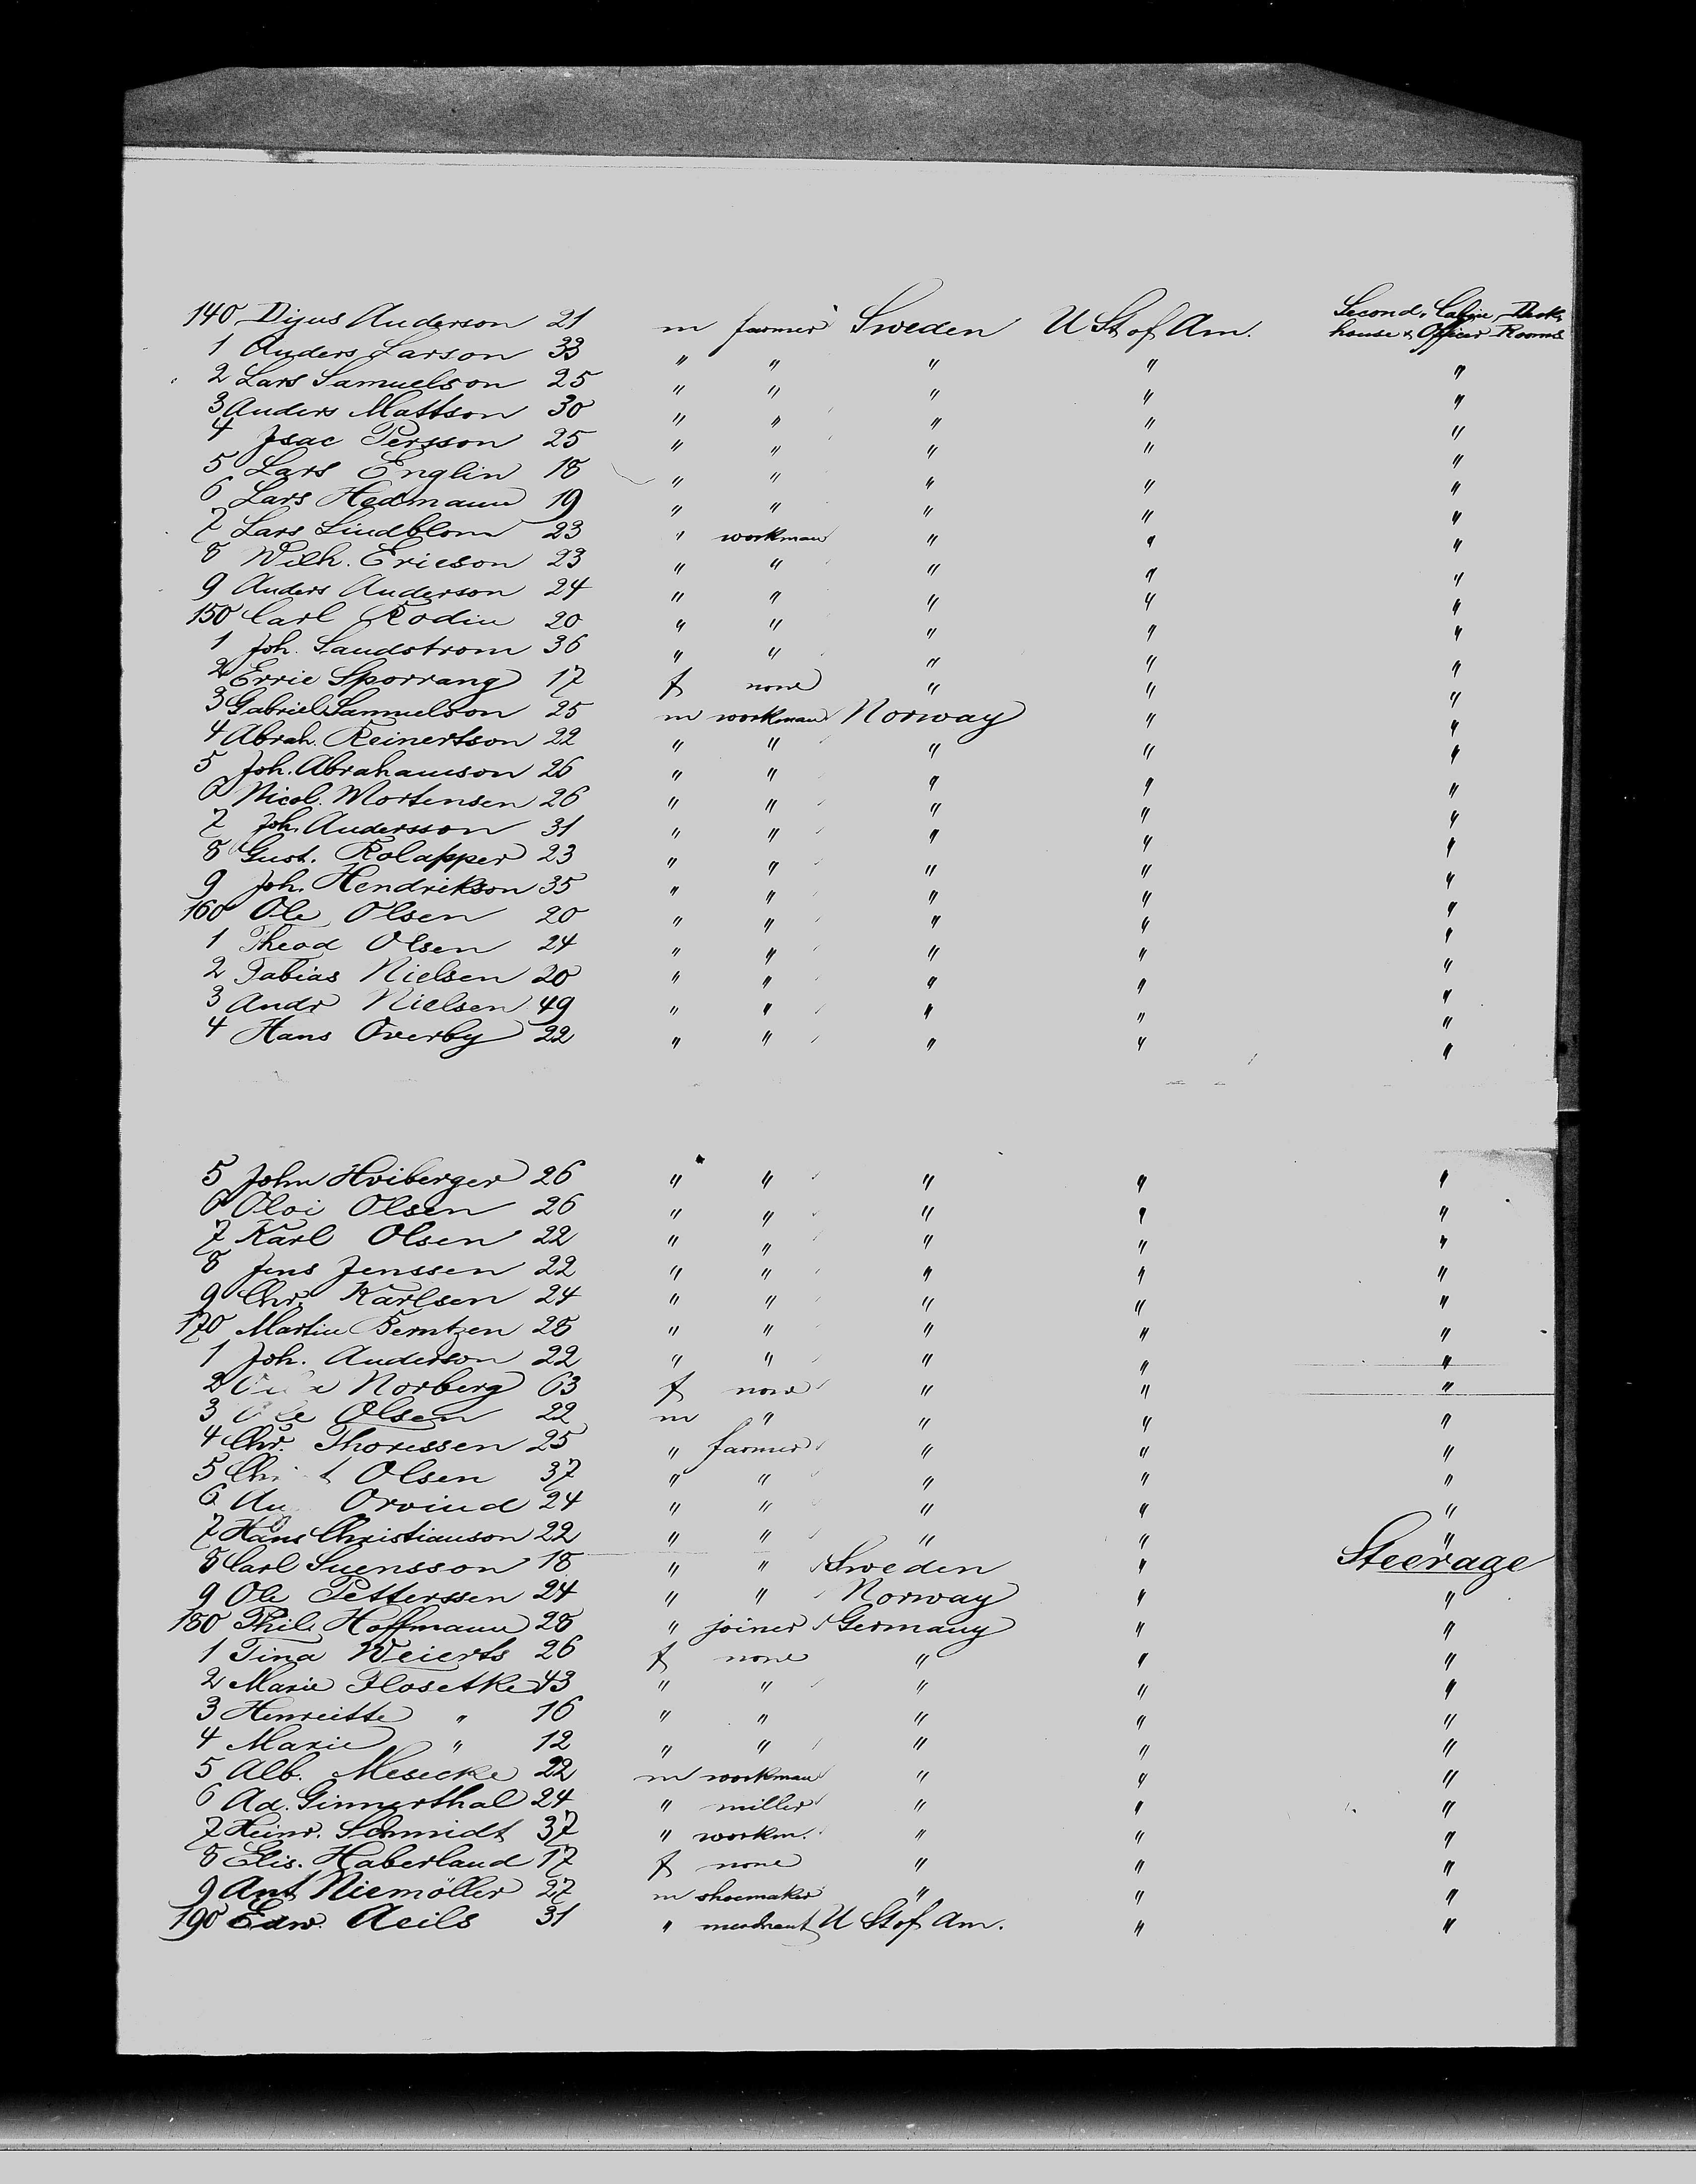 140 Dijus Anderson 21 m farmer Sweden U St of Am. Second, Cabin, Deck house & Officer Rooms
1 Anders Larson 33 " " " " "
2 Lars Samuelson 25 " " " " "
3 Anders Mattson 30 " " " " "
4 Isac Persson 25 " " " " "
5 Lars Englin 18 " " " " "
6 Lars Hedmann 19 " " " " "
7 Lars Lindblom 23 " workman " " "
8 Wilh. Ericson 23 " " " " "
9 Anders Anderson 24 " " " " "
150 Carl Rodin 20 " " " " "
1 Joh. Sandstrom 36 " " " " "
2 Erric Sporrang 17 f none " " "
3 Gabriel Samuelson 25 m workman Norway " "
4 Abrah. Reinertson 22 " " " " "
5 Joh. Abrahamson 26 " " " " "
6 Nicol. Mortensen 26 " " " " "
7 Joh. Andersson 31 " " " " "
8 Gust. Rolapper 23 " " " " "
9 Joh. Hendrikson 35 " " " " "
160 Ole Olsen 20 " " " " "
1 Theod Olsen 24 " " " " "
2 Tabias Nielsen 20 " " " " "
3 Andr Nielsen 49 " " " " "
4 Hans Overby 22 " " " " "
5 John Hviberger 26 " " " " "
6 Oloi Olsen 26 " " " " "
7 Karl Olsen 22 " " " " "
8 Jens Jenssen 22 " " " " "
9 Chr. Karlsen 24 " " " " "
170 Martin Berntzen 28 " " " " "
1 Joh. Anderson 22 " " " " "
2 Norberg 63 f none " " "
3 Ole Olsen 22 m " " " "
4 Chr. Thoressen 25 " farmer " " "
5 Olsen 37 " " " " "
6 Orvind 24 " " " " "
7 Hans Christianson 22 " " " " "
8 Carl Suensson 18 " " Sweden " Steerage
9 Ole Petterssen 24 " " Norway " "
180 Phil. Hoffmann 28 " joiner Germany " "
1 Tina Weierts 26 f none " " "
2 Marie Flosetke 43 " " " " "
3 Henreitte " 16 " " " " "
4 Marie " 12 " " " " "
5 Alb. Mesecke 22 m workman " " "
6 Ad. Ginnerthal 24 " miller " " "
7 Heinr. Schmidt 37 " workm. " " "
8 Elis. Haberland 17 f none " " "
9 Ant Niemöller 27 m shoemaker " " "
190 Edw. Aeils 31 " merchant U St of Am. " "